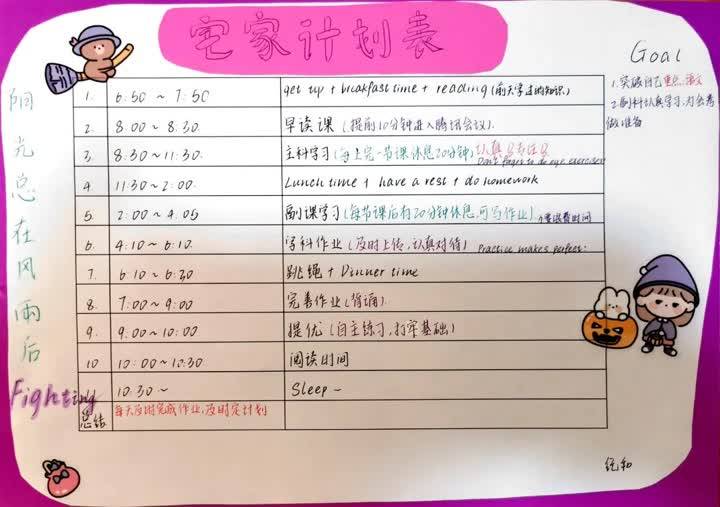 宅家计划表
Goal
1. 突破自己重点:语文
2. 副科认真学习,为会考
做准备
阳光总在风雨后
Fighting
1. 6:50 ~ 7:50 get up + breakfast time + reading (前天学过的知识)
2. 8:00 ~ 8:30 早读课 (提前10分钟进入腾讯会议).
3. 8:30 ~ 11:30. 主科学习 (每上完一节课休息20分钟) 认真&专注
Don't forget to do eye exercises!
4. 11:30 ~ 2:00. Lunch time + have a rest + do homework
5. 2:00 ~ 4:05 副课学习 (每节课后有20分钟休息,可写作业) 不要浪费时间
6. 4:10 ~ 6:10. 写科作业 (及时上传,认真对待) Practice makes perfect.
7. 6:10 ~ 6:30 跳绳 + Dinner time
8. 7:00 ~ 9:00 完善作业 (背诵).
9. 9:00 ~ 10:00 提优 (自主练习,打牢基础)
10 10:00 ~ 10:30 阅读时间
11 10:30 ~ Sleep ~
总结 每天及时完成作业,及时定计划